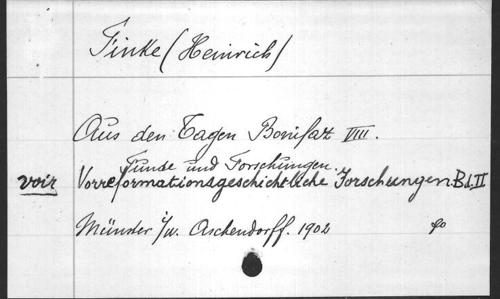 Finke (Heinrich)
Aus den Tagen Bonifaz VIII.
Funde und Forschungen.
voir Vorreformationsgeschichtliche Forschungen Bd. II
Münster i/w. Aschendorff. 1902